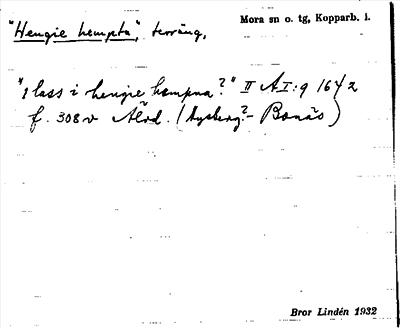 "Hengie hempta", terräng,
Mora sn o. tg, Kopparb. l.
"1 lass i hengie hempna?" II A I:9 1642
f. 308 v Älvd. (Nysberg?- Bonäs)
Bror Lindén 1932